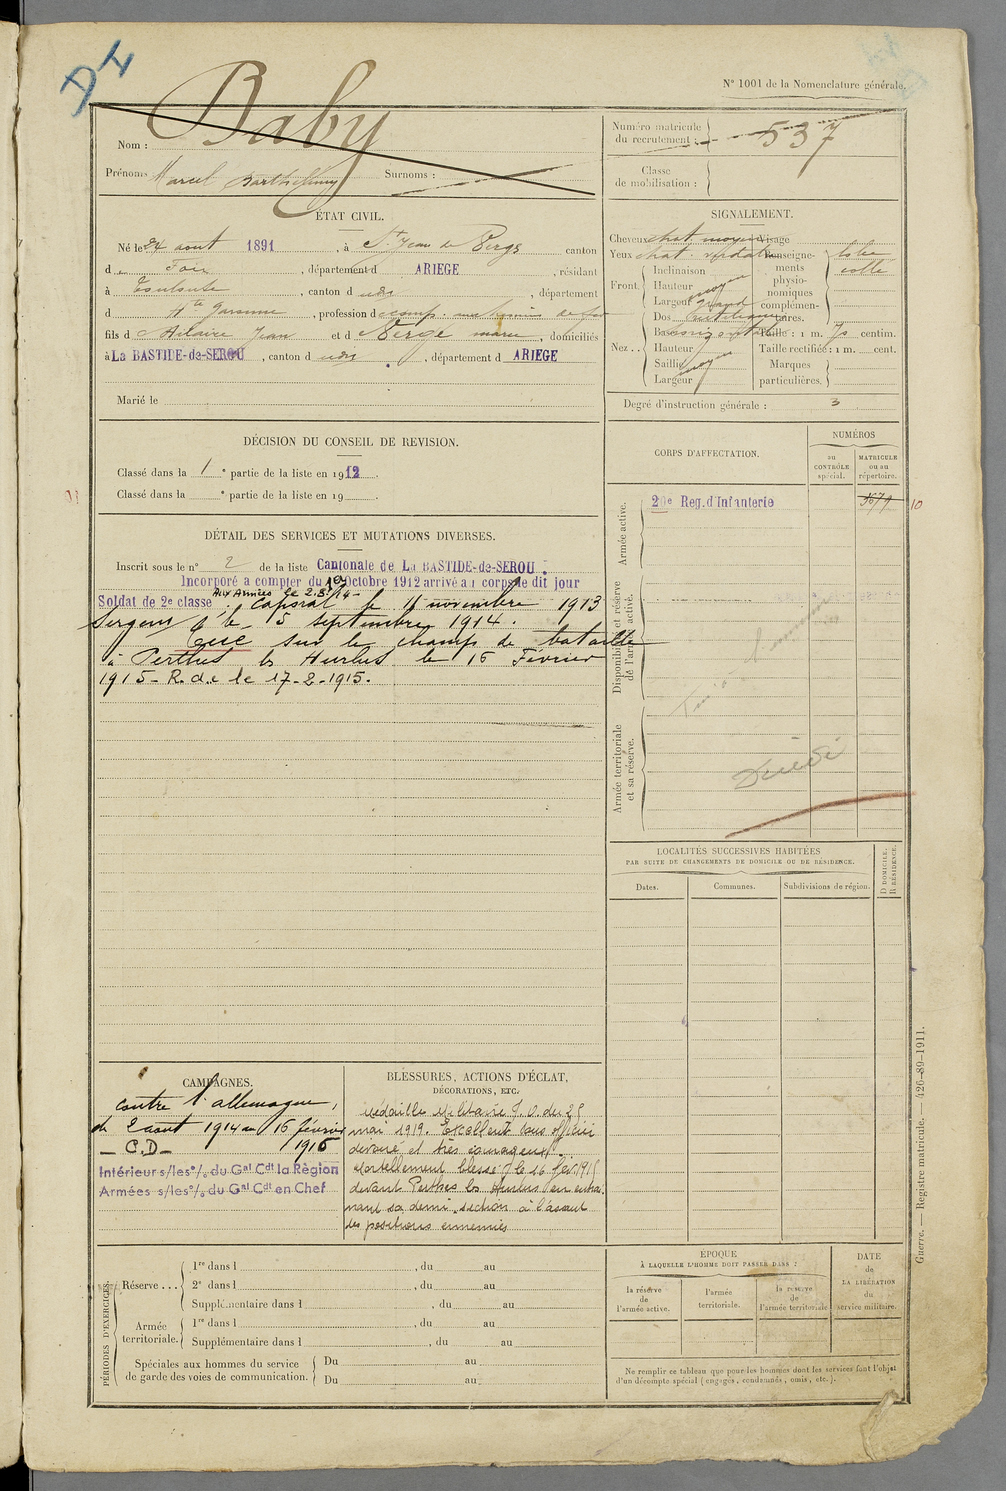 D4
N° 1001 de la Nomenclature générale.
Nom : Baby
Prénoms Marcel Barthélemy Surnoms :
Numéro matricule du recrutement : 537
Classe de mobilisation :
ÉTAT CIVIL.
Né le 24 aout 1891, à St Jean de Verges canton
de Foix, département d ARIEGE, résidant
à Toulouse, canton d udt, département
d Hte Garonne, profession d
fils d Hilaire Jean et d Vergé marie, domiciliés
à La BASTIDE-de-SEROU, canton d udt, département d ARIEGE
Marié le
SIGNALEMENT.
Cheveux chat. moyen Visage
Yeux chat. verdatre Renseignements physionomiques complémentaires.
Front. Inclinaison
Hauteur moyen
Largeur grand
Nez . . Dos
Base horizontale Taille : 1 m. 70 centim.
Hauteur moyen Taille rectifiée : 1 m. cent.
Saillie Marques
Largeur particulières.
Degré d'instruction générale : 3
DÉCISION DU CONSEIL DE REVISION.
Classé dans la 1e partie de la liste en 1912.
Classé dans la e partie de la liste en 19 .
CORPS D'AFFECTATION.
NUMÉROS
au CONTRÔLE spécial.
MATRICULE ou au répertoire.
Armée active.
20e Reg. d'Infanterie
10
Disponibilité et réserve de l'armée active.
Armée territoriale et sa réserve.
Décédé
DÉTAIL DES SERVICES ET MUTATIONS DIVERSES.
Inscrit sous le n° 2 de la liste Cantonale de La BASTIDE-de-SEROU.
Incorporé a compter du 10 Octobre 1912 arrivé au corps le dit jour
Aux Armées le 2.8.14-
Soldat de 2e classe. Caporal le 11 novembre 1913
Sergent le 15 septembre 1914.
Tué sur le champs de bataille
à Perthes les Hurlus le 16 Février
1915- R.d.c le 17-2-1915.
LOCALITÉS SUCCESSIVES HABITÉES
PAR SUITE DE CHANGEMENTS DE DOMICILE OU DE RÉSIDENCE.
Dates.
Communes.
Subdivisions de région.
D DOMICILE.
R RÉSIDENCE.
CAMPAGNES.
contre l'allemagne,
du 2 aout 1914 au 16 février
1915
- C.D-
Intérieur s/les o/ du Gal Cdt la Région
Armées s/les o/ du Gal Cdt en Chef
BLESSURES, ACTIONS D'ÉCLAT,
DÉCORATIONS, ETC.
Médaille Militaire J.O. du 25
mai 1919. Excellent sous officier
dévoué et très courageux.
Mortellement blessé le 16 fév. 1915
devant Perthes les Hurlus en entrai-
nant sa demi-section à l'assaut
des positions ennemies
PÉRIODES D'EXERCICES.
Réserve . . . 1re dans l , du au
2e dans l , du au
Supplémentaire dans l , du au
Armée territoriale. 1re dans l , du au
Supplémentaire dans l , du au
Spéciales aux hommes du service Du au
de garde des voies de communication. Du au
ÉPOQUE
À LAQUELLE L'HOMME DOIT PASSER DANS :
la réserve de l'armée active.
l'armée territoriale.
la réserve de l'armée territoriale
DATE de LA LIBÉRATION du service militaire.
Ne remplir ce tableau que pour les hommes dont les services font l'objet
d'un décompte spécial (engagés, condamnés, omis, etc.).
Guerre. — Registre matricule. — 426-89-1911.